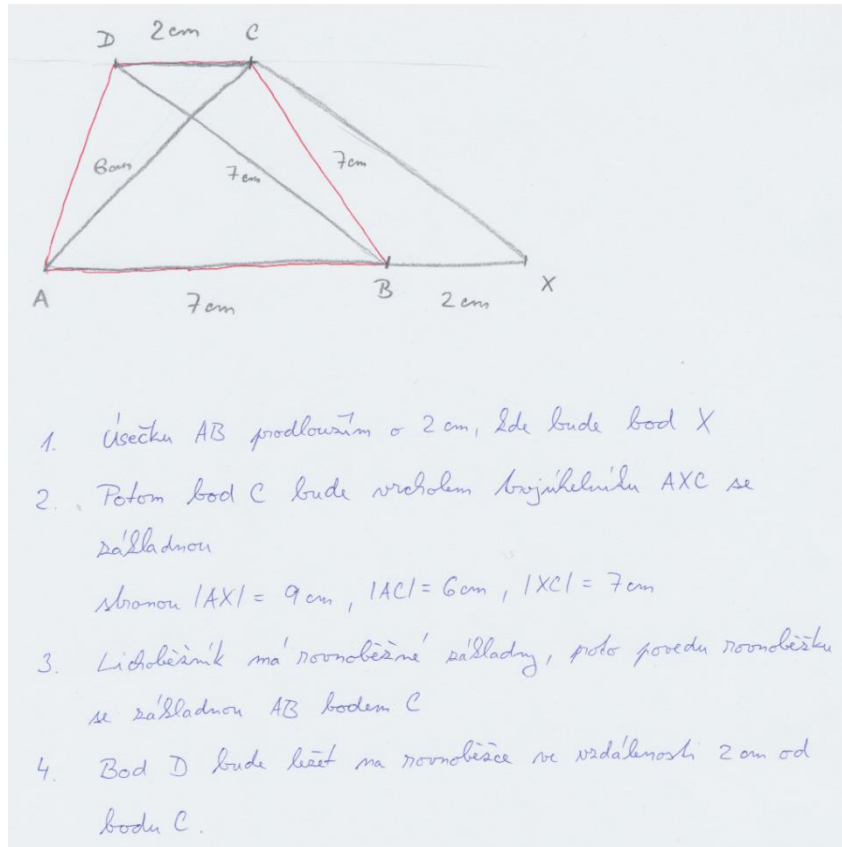 D 2cm C
6cm
7cm
7cm
A
7cm
B
2cm
X
1. Úsečku AB prodloužím o 2 cm, kde bude bod X
2. Potom bod C bude vrcholem trojúhelníku AXC se
základnou
stranou |AX| = 9 cm, |AC| = 6cm, |XC| = 7cm
3. Lichoběžník má rovnoběžné základny, proto povedu rovnoběžku
se základnou AB bodem C
4. Bod D bude ležet na rovnoběžce ve vzdálenosti 2 cm od
bodu C.